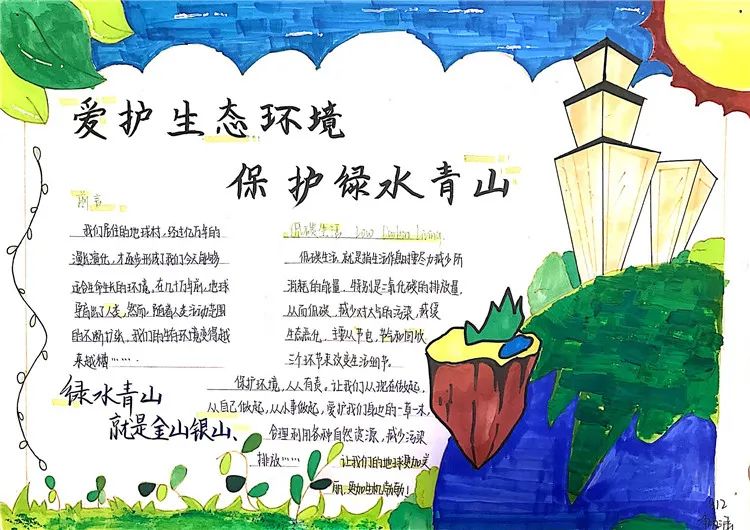 爱护生态环境
保护绿水青山
前言
我们居住的地球村，经过亿万年的
漫长演化，才逐步形成了我们今天能够
适合生存的环境，在几十万年前，地球
孕育出了人类，然而，随着人类活动范围
的不断扩张，我们的生存环境变得越
来越糟……
低碳生活 Low Carbon Living
低碳生活，就是指生活作息时要尽力减少所
消耗的能量，特别是二氧化碳的排放量，
从而低碳，减少对大气的污染，减缓
生态恶化，主要从节电，节气和回收
三个环节来改变生活细节。
绿水青山
就是金山银山、
保护环境，人人有责，让我们从现在做起，
从自己做起，从小事做起，爱护我们身边的一草一木，
合理利用各种自然资源，减少污染
排放……让我们的地球更加美
丽，更加生机勃勃！